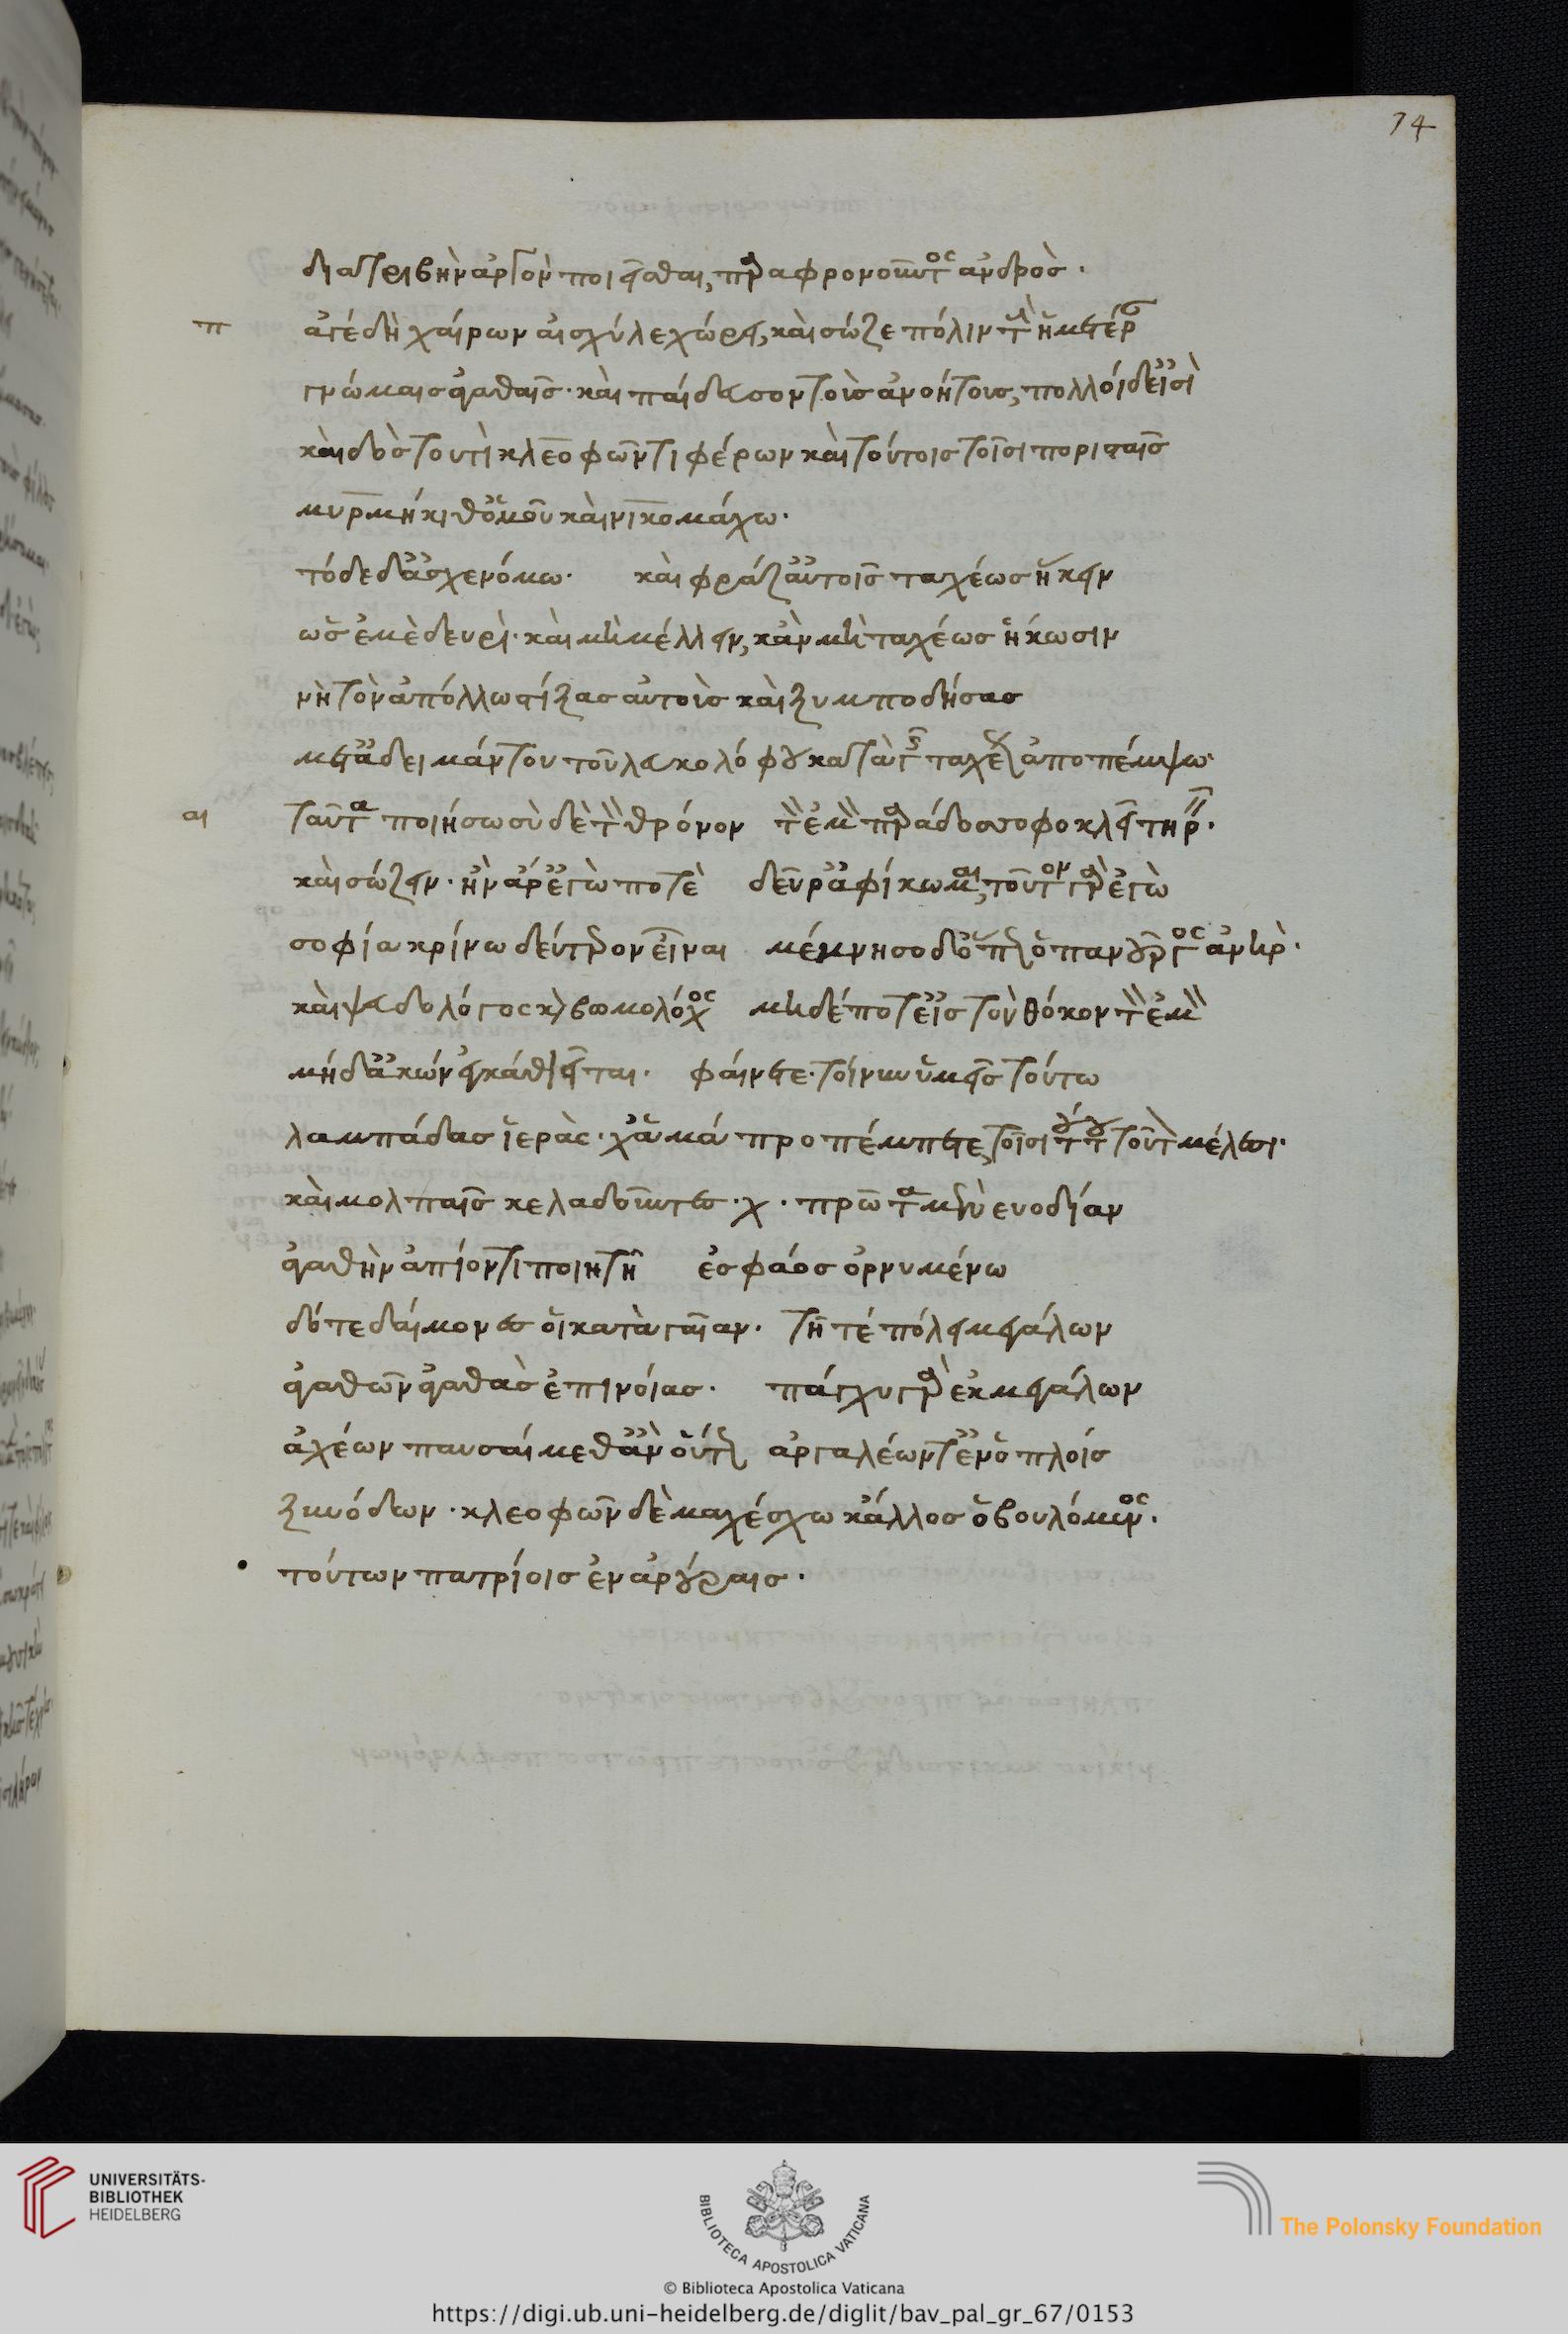 74
διατριβὴν ἀργὸν ποιεῖσθαι, παραφρονοῦντος ἀνδρὸς.
π ἄγε δὴ χαίρων αἰσχύλε χώρει, καὶ σώζε πόλιν τὴν ἡμετέραν
γνώμαις ἀγαθαῖς· καὶ παίδευσον τοὺς ἀνοήτους, πολλοὶ δ' εἰσὶ
καὶ δὸς τουτὶ κλεοφῶντι φέρων καὶ τούτοις τοῖσι πορισταῖς
μύρμηκί θ' ὁμοῦ καὶ νικομάχω·
τόδε δ' ἀρχενόμω· καὶ φράζ' αὐτοῖς ταχέως ἥκειν
ὡς ἐμὲ δευρὶ· καὶ μὴ μέλλειν, κἂν μὴ ταχέως ἥκωσιν
νὴ τὸν ἀπόλλω στίξας αὐτοὺς καὶ ξυμποδήσας
μετ' ἀδειμάντου τοῦ λευκολόφου κατὰ γῆς ταχέως ἀποπέμψω·
αι ταῦτα ποιήσω σὺ δὲ τὸν θρόνον τὸν ἐμὸν παράδος σοφοκλεῖ τηρεῖν·
καὶ σώζειν· ἢν ἄρ' ἐγὼ ποτὲ δεῦρ' ἀφίκωμαι, τοῦτον γὰρ ἐγὼ
σοφία κρίνω δεύτερον εἶναι μέμνησο δ' ὅπως ὁ πανοῦργος ἀνὴρ·
καὶ ψευδολόγος καὶ βωμολόχος μηδέποτ' εἰς τὸν θόκον τὸν ἐμὸν
μήδ' ἄκων ἐγκαθιεῖται· φαίνετε τοίνυν ὑμεῖς τούτω
λαμπάδας ἱερὰς· χἄμα προπέμπετε, τοῖσι τούτου τοῦτον μέλεσι·
καὶ μολπαῖς κελαδοῦντες· χ· πρῶτα μὲν εὐοδίαν
ἀγαθὴν ἀπιόντι ποιητῆ ἐς φάος ὀρνυμένω
δότε δαίμονες οἱ κατὰ γαῖαν· τῆ τέ πόλει μεγάλων
ἀγαθῶν ἀγαθὰς ἐπινοίας· πάγχυ γὰρ ἐκ μεγάλων
ἀχέων παυσαίμεθ' ἂν οὕτως ἀργαλέων τ' ἐν ὅπλοις
ξυνόδων· κλεοφῶν δὲ μαχέσθω κἄλλος ὁ βουλόμενος·
τούτων πατρίοις ἐν ἀρούραις·
UNIVERSITÄTS-
BIBLIOTHEK
HEIDELBERG
BIBLIOTECA APOSTOLICA VATICANA
The Polonsky Foundation
© Biblioteca Apostolica Vaticana
https://digi.ub.uni-heidelberg.de/diglit/bav_pal_gr_67/0153